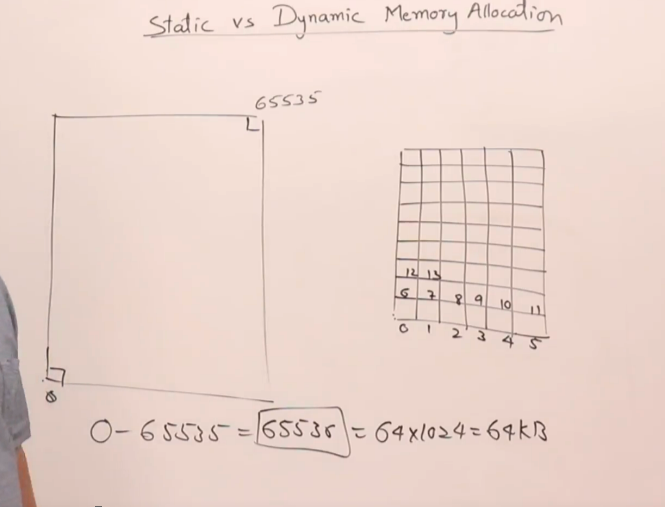 Static vs Dynamic Memory Allocation
65535
12 13
6 7 8 9 10 11
0 1 2 3 4 5
0
0 - 65535 = 65536 = 64x1024 = 64KB